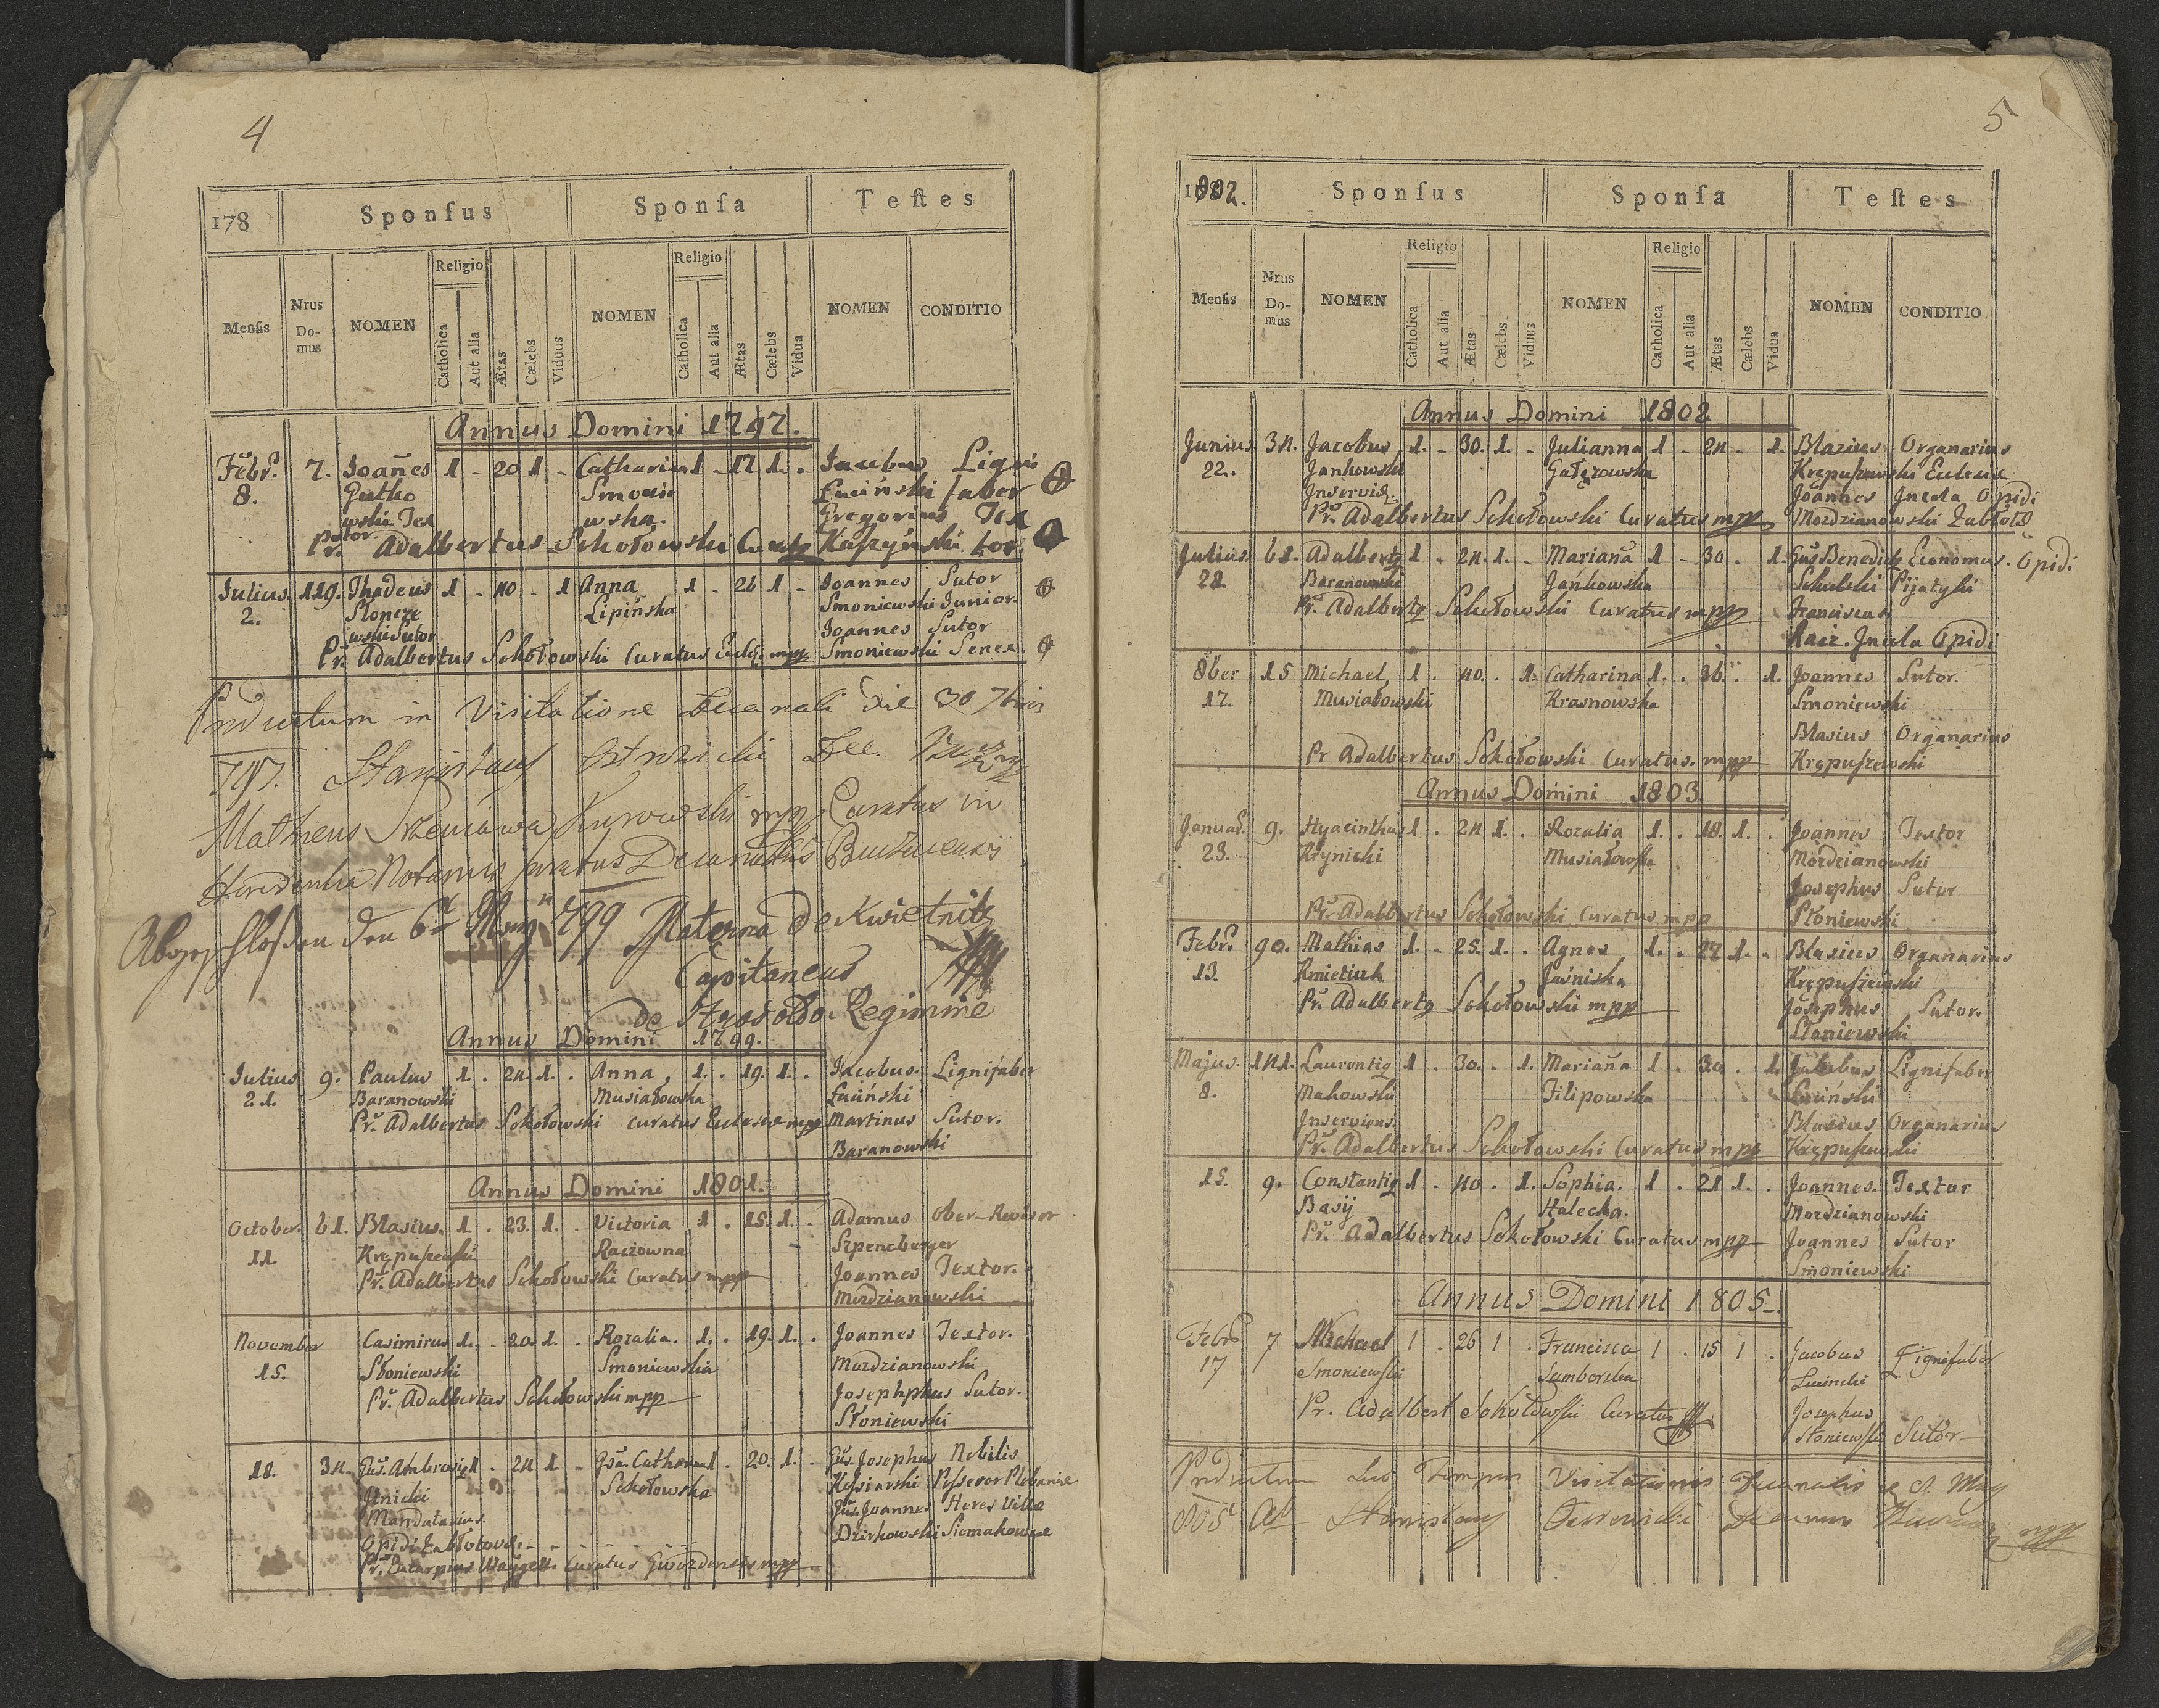 4
178 Sponſus Sponſa Teſtes
Menſis Nrus Do- mus NOMEN Religio Catholica Aut alia Ætas Cælebs Viduus NOMEN Religio Catholica Aut alia Ætas Cælebs Vidua NOMEN CONDITIO
Annus Domini 1797.
Febr. 7. Joañes 1 - 20 1 - Catharina 1 - 17 1. - Jacobus Ligni
8. Gutko Smonie Łuciński faber
wski Tex wska. Gregorius Tex
tor
Pr. Adalbertus Sokołowski tor
Julius. 119. Thadeus 1 - 40 - 1 Anna 1 - 26 1 - Joannes Sutor
2. Słoncze Lipińska Smoniewski Junior.
wski Sutor Joannes Sutor
Pr. Adalbertus Sokołowski Curatus Eccl. mpp Smoniewski Senex.
Productum in Visitatione Decanali die 30 7bris
797. Dec.
Matheus Kurowski mpp Curatus in
Notarius juratus Decanatus
den 6t May 799 Materna de Kwietnitz
Capitaneus
de Regimine
Annus Domini 1799.
Julius 9. Paulus 1. . 24. 1. . Anna 1. . 19. 1. . Jacobus. Lignifaber
21. Baranowski Musiałowska Łuciński
Pr. Adalbertus Sokołowski Curatus Eclesiæ mpp Martinus Sutor.
Baranowski
Annus Domini 1801.
October. 61. Blasius. 1. . 23. 1. . Victoria 1 . 15. 1. . Adamus Ober-Revisor
11. Krępuszewski Raciowna Szpenberger
Pr. Adalbertus Sokołowski Curatus mpp Joannes Textor.
Mozdzianowski
November Casimirus 1. . 20. 1. . Rozalia. 1. . 19. 1. . Joannes Textor.
15. Słoniewski Smoniewska Mozdzianowski
Pr. Adalbertus Sokołowski mpp Josephphus Sutor.
Słoniewski
18. 34. Gūs. Ambrosig 1 . 24 1 . Gsa. Catharina 1 . 20. 1. . Gūs. Josephus Nobilis
Jlnicki Sokołowska
Mandatarius Gūs. Joannes Heres Villæ
Opidi Zabłotow Dzirkowski Siemakowce
Curatus Gwozdensis mpp
5
1802. Sponſus Sponſa Teſtes
Menſis Nrus Do- mus NOMEN Religio Catholica Aut alia Ætas Cælebs Viduus NOMEN Religio Catholica Aut alia Ætas Cælebs Vidua NOMEN CONDITIO
Annus Domini 1802
Junius 34. Jacobus 1. - 30. 1. - Julianna 1 - 24 - 1. Blazius Organarius
22. Jankowski Gałęzowska Krępuszewski Eclesiæ
Inservid. Joannes Jncola Opidi
Pr. Adalbertus Sokołowski Curatus mpp Mozdzianowski Zabłotō
Julius. 61. Adalbertg 1 - 24. 1. - Mariaña 1 - 30 - 1. Gūs Benedictg Economus. Opidi
28. Baranowski Jankowska
Pr. Adalbertg Sokołowski Curatus mpp Franciscus
Racz. Jncola Opidi
8ber 15 Michael 1 . 40. . 1. Catharina 1. . 36. . 1. Joannes Sutor.
17. Musiałowski Krasnowska Smoniewski
Blasius Organarius
Pr Adalbertus Sokołowski Curatus. mpp Krępuszewski
Annus Domini 1803.
Januar. 9. Hyacinthus 1 . 24 1. . Rozalia 1. . 18. 1. . Joannes Textor
23. Krynicki Musiałowska Mozdzianowski
Josephus Sutor
Pr. Adalbertus Sokołowski Curatus mpp Słoniewski
Febr. 90. Mathias 1. . 25. 1. . Agnes 1. . 27 1. . Blasius Organarius
13. Kmieciuk Jasniska Krępuszewski
Pr. Adalbertg Sokołowski mpp Josephus Sutor.
Słoniewski
Majus. 141. Laurentig 1 . 30. . 1. Mariaña 1 . 30 . 1. Jakobus Lignifaber
8. Makowski Filipowska Łuciński
Inserviens Blasius Organarius
Pr. Adalbertus Sokołowski Curatus mpp Krępuszewski
15. 9. Constantig 1 . 40 . 1. Sophia. 1 . 21 1. . Joannes. Textor
Basij Halecka. Mozdzianowski
Pr. Adalbertus Sokołowski Curatus mpp Joannes Sutor
Smoniewski
Annus Domini 1805.
Febr 7 Michael 1 . 26 1 . Francisca 1 . 15 1 . Jacobus Lignifaber
17 Smoniewski Samborska Łucinski
Pr. Adalbert Sokołowski Curatus Josephus
Słoniewski Sutor
Productum Visitationis Decanalis May
805